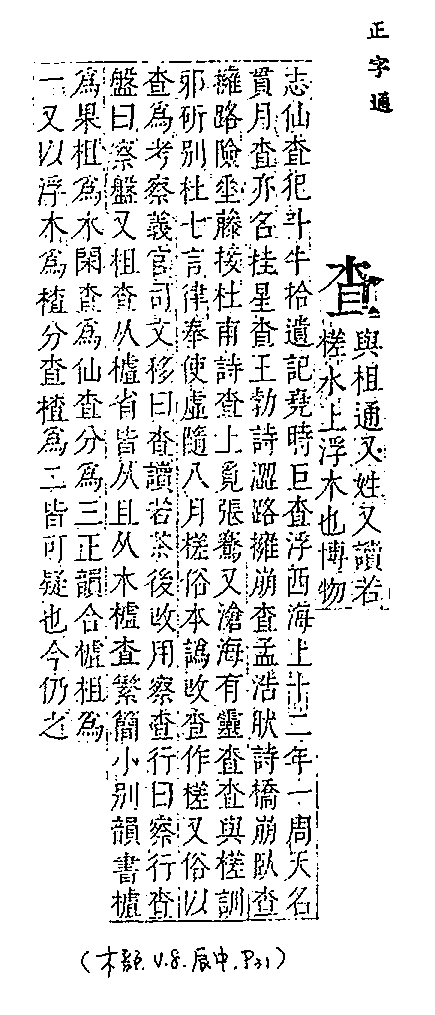 正字通
查
與柤通又姓又讀若
槎水上浮木也博物
志仙查犯斗牛拾遺記堯時巨查浮西海上十二年一周天名
貫月查亦名挂星查王勃詩澀路擁崩查孟浩然詩橋崩臥查
擁路險垂藤接杜甫詩查上覓張騫又滄海有靈查查與槎訓
邪斫別杜七言律奉使虛隨八月槎俗本譌改查作槎又俗以
查爲考察義官司文移曰查讀若茶後改用察查行曰察行查
盤曰察盤又柤查从樝省皆从且从木樝查繁簡小別韻書樝
爲果柤爲水閑查爲仙查分爲三正韻合樝柤爲
一又以浮木爲楂分查楂爲二皆可疑也今仍之
(木部.V.8.辰中.P31)